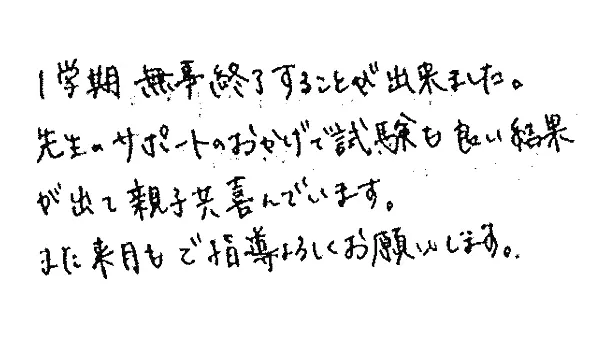 1学期無事終了することが出来ました。
先生のサポートのおかげで試験も良い結果
が出て親子共喜んでいます。
また来月もご指導よろしくお願いします。